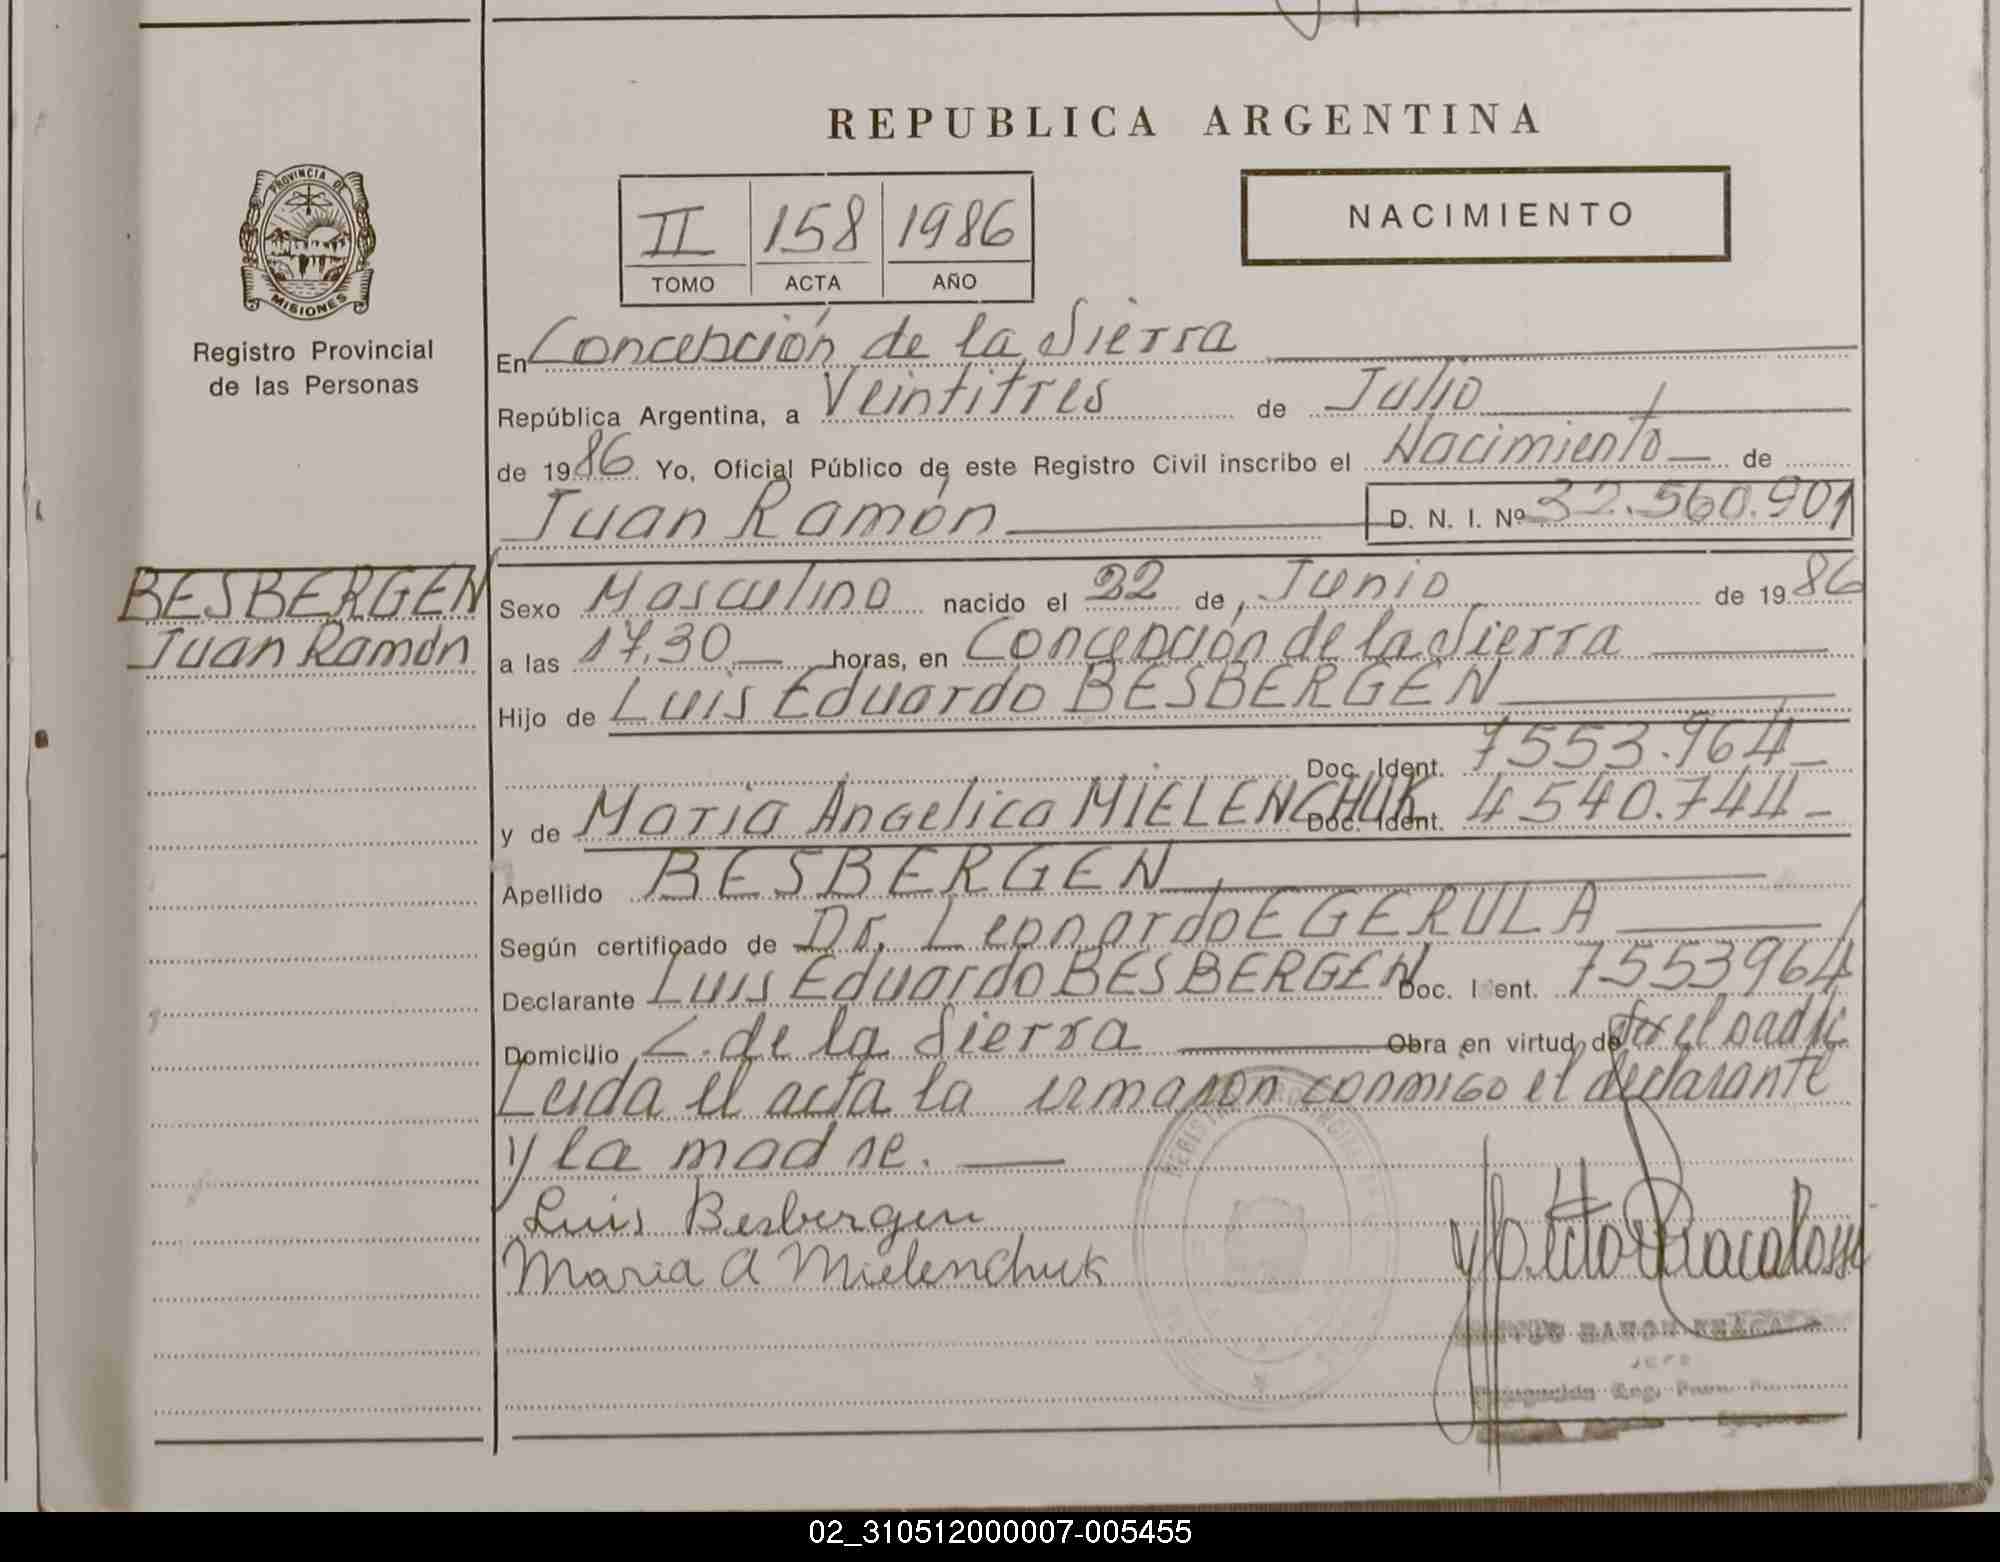 REPUBLICA ARGENTINA
PROVINCIA DE
MISIONES
Registro Provincial
de las Personas
II 158 1986
TOMO ACTA AÑO
NACIMIENTO
En Concepción de la Sierra
República Argentina, a Veintitres de Julio
de 1986 Yo, Oficial Público de este Registro Civil inscribo el Nacimiento de
Juan Ramón D. N. I. Nº 32.560.901
BESBERGEN
Juan Ramón
Sexo Masculino nacido el 22 de Junio de 1986
a las 17,30 horas, en Concepción de la Sierra
Hijo de Luis Eduardo BESBERGEN
Doc. Ident. 7553.964
y de Maria Angelica MIELENCHUK Doc. Ident. 4540.744
Apellido BESBERGEN
Según certificado de Dr. Leonardo E GERULA
Declarante Luis Eduardo BESBERGEN Doc. Ident. 7553964
Domicilio C. de la Sierra Obra en virtud de
Leida el acta la conmigo el declarante
y la madre.
Luis Besbergen
Maria A Mielenchuk
JEFE
02_310512000007-005455